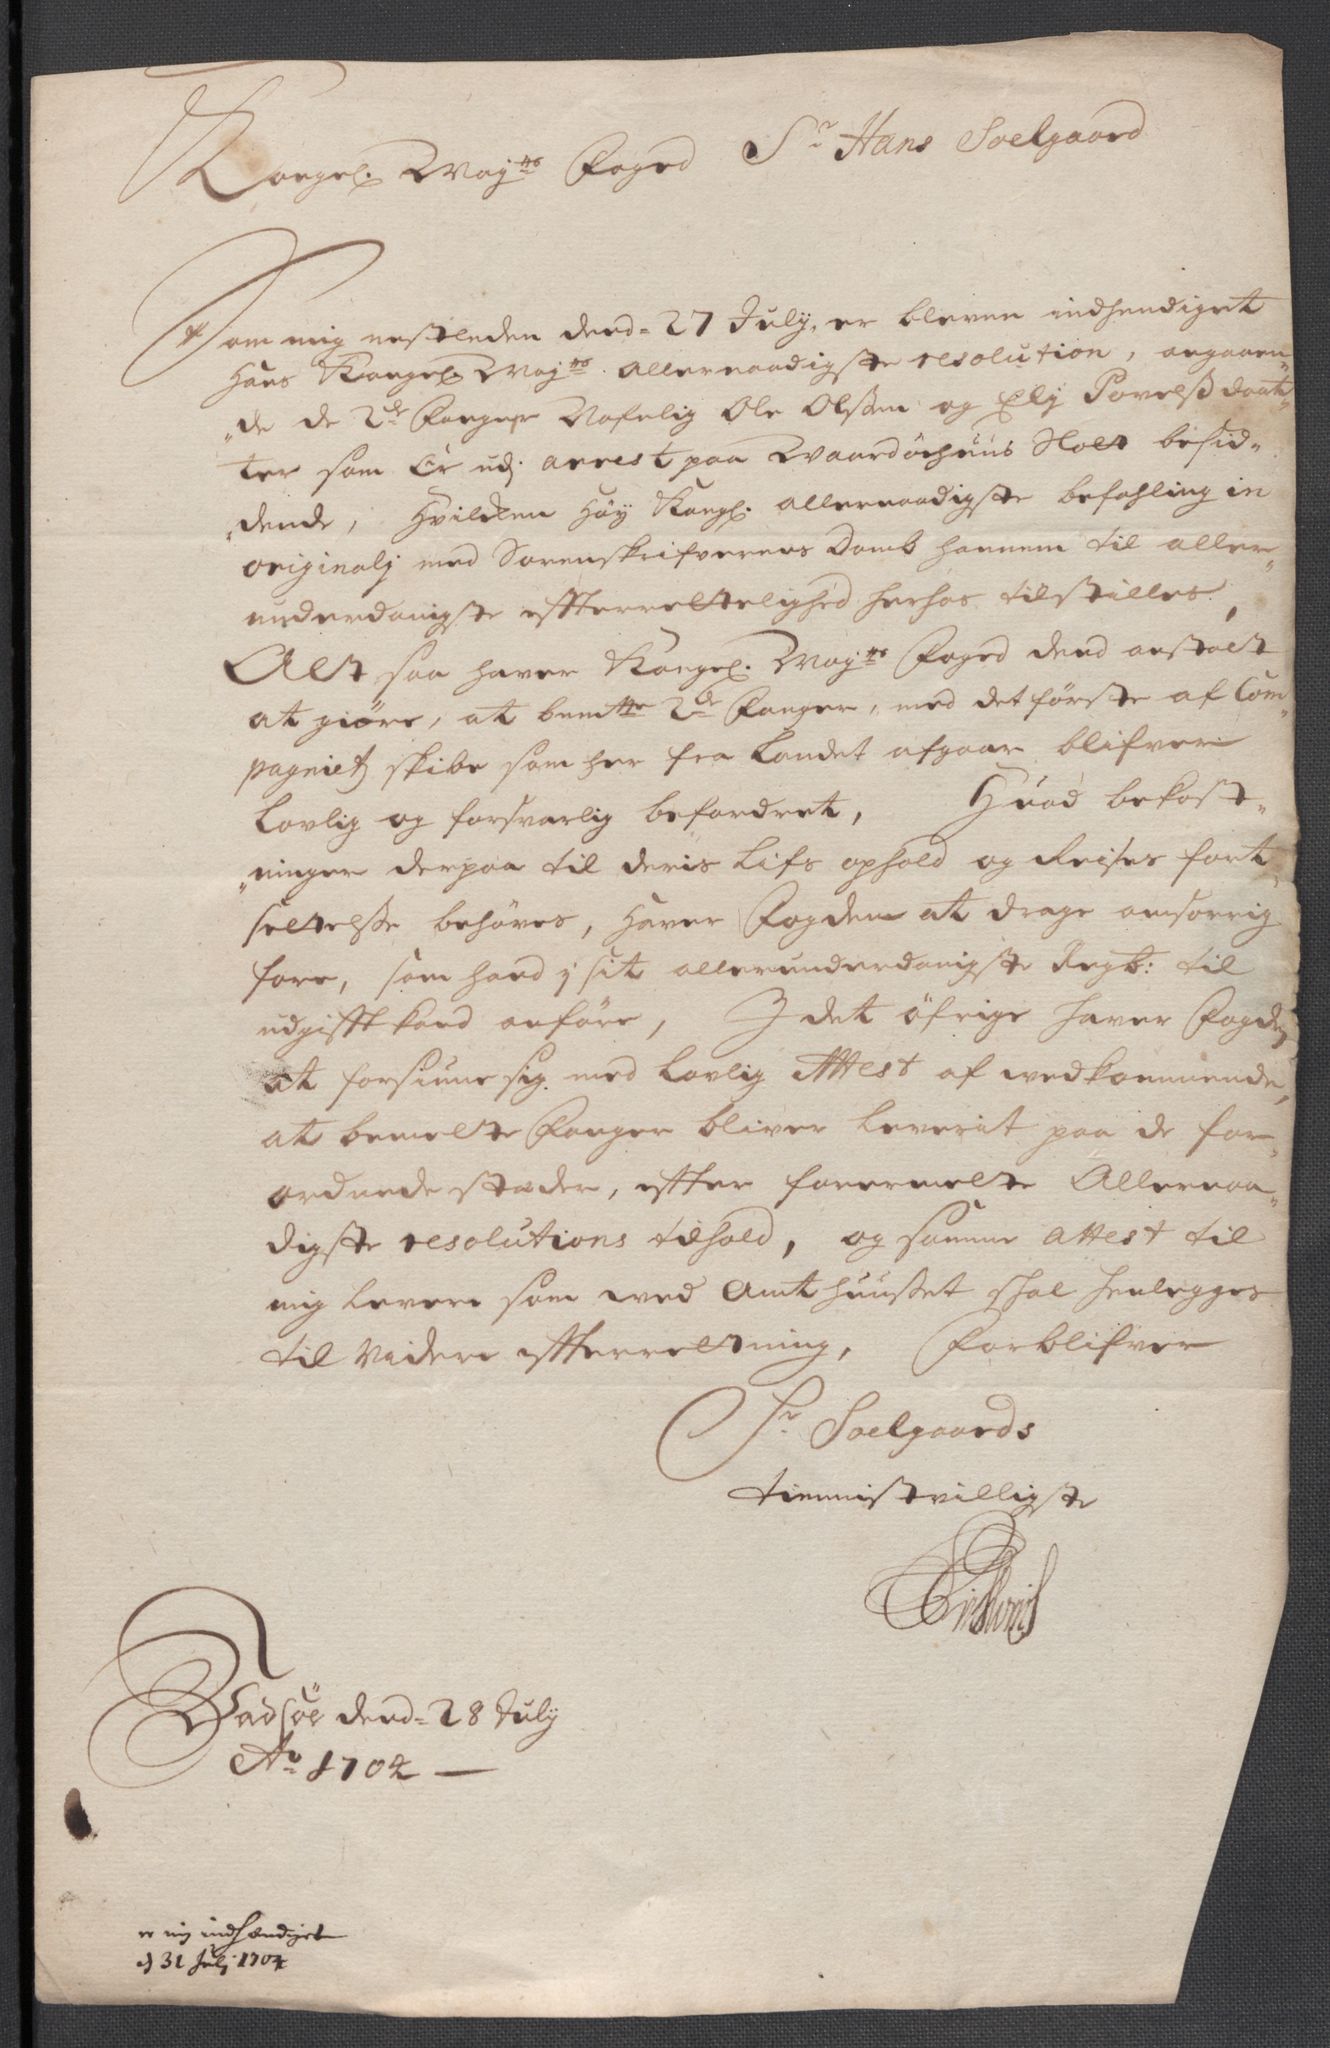 Kongel. Maÿ:ts Foged Sr Hans Soelgaard
Som mig nestleden dend 27 July, er bleven indhendiget
Hans Kongel. Maÿts allernaadigste resolution, angaaen„
„de de 2de Fanger Ole Olssen og Elj Povelsdaat„
ter som er udj arrest paa Waardöehuus Slott besid„
„dende, Hvilcken Höy Kongl. allernaadigste befahling in
originalj med Sorenskrifverens Domb hannem til aller„
underdanigste effterrettelighed herhos tilstilles.
Alt saa haver Kongel. Mayts Foged dend anstalt
at giöre, at bemte 2de Fanger, med det förste af Com„
pagniets skibe som her fra Landet afgaar blifver
Lovlig og forsvarlig befordret, Hvad bekost„
„ninger derpaa til deris Lifs ophold og Reises fort„
settelsse behöves, haver Fogden at drage omsorrig
fore, som hand j sit allerunderdanigste Regb: til
udgifft kand anföre, I det öfrige haver Fogden
at forsiune sig med Lovlig Attest af wedkommende,
at bemelte Fanger bliver leverit paa de for„
ordnede stæder, effter forermelte Allernaa„
digste resolutions tilhold, og samme attest til
mig levere som wed Amthuusset skal henlegges
til videre effterretning, Forblifver
Sr Soelgaards
tiennistvilligste
Vadsöe dend 28 July
Ao 1704
er mig indhændiget
d 31 Julj 1704